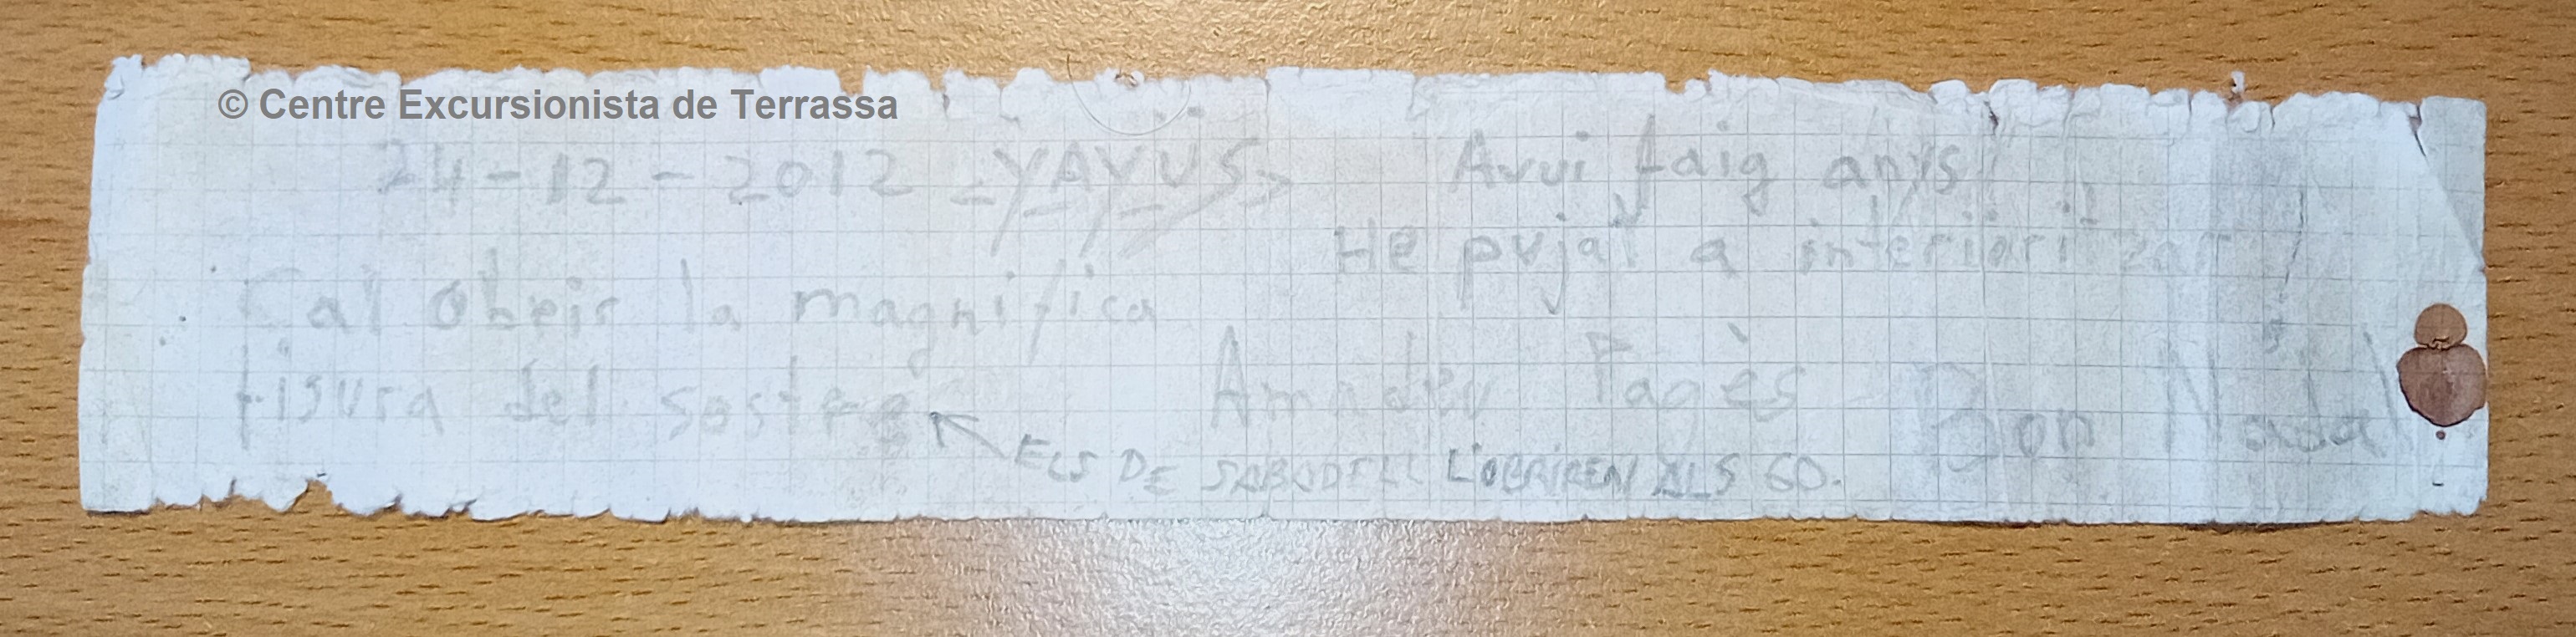 © Centre Excursionista de Terrassa
24-12-2012 -YAYUS-
Avui faig anys!
He pujat a interioritzar!
Cal obeir la magnifica
fisura del sostre
Amadeu Pagès
Bon Nadal
ELS DE SABADELL L'OBRIREN ALS 60.